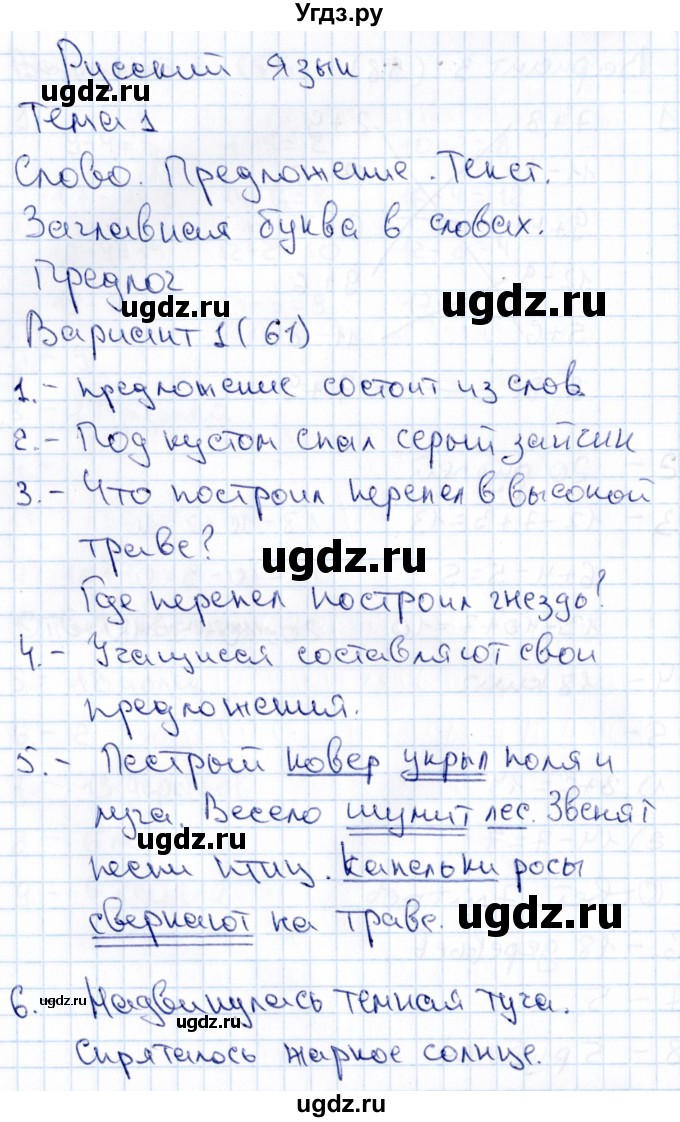 Угдз.ру
Русский язык
ugdz.ru
Тема 1
Слово. Предложение. Текст.
Заглавная буква в словах.
Предлог
ugdz.ru
ugdz.ru
Вариант 1 (61)
1. - предложение состоит из слов.
2. - Под кустом спал серый зайчик
3. - Что построил перепел в высокой
траве?
ugdz.ru
Где перепел построил гнездо?
4. - Учащиеся составляют свои
предложения.
5. - Пестрый ковер укрыл поля и
луга. Весело шумит лес. Звенят
ugdz.ru
песни птиц. Капельки росы
сверкают на траве.
ugdz.ru
6. ugdz.ru Надвинулась темная туча.
ugdz.ru
Спряталось жаркое солнце.
ugdz.ru